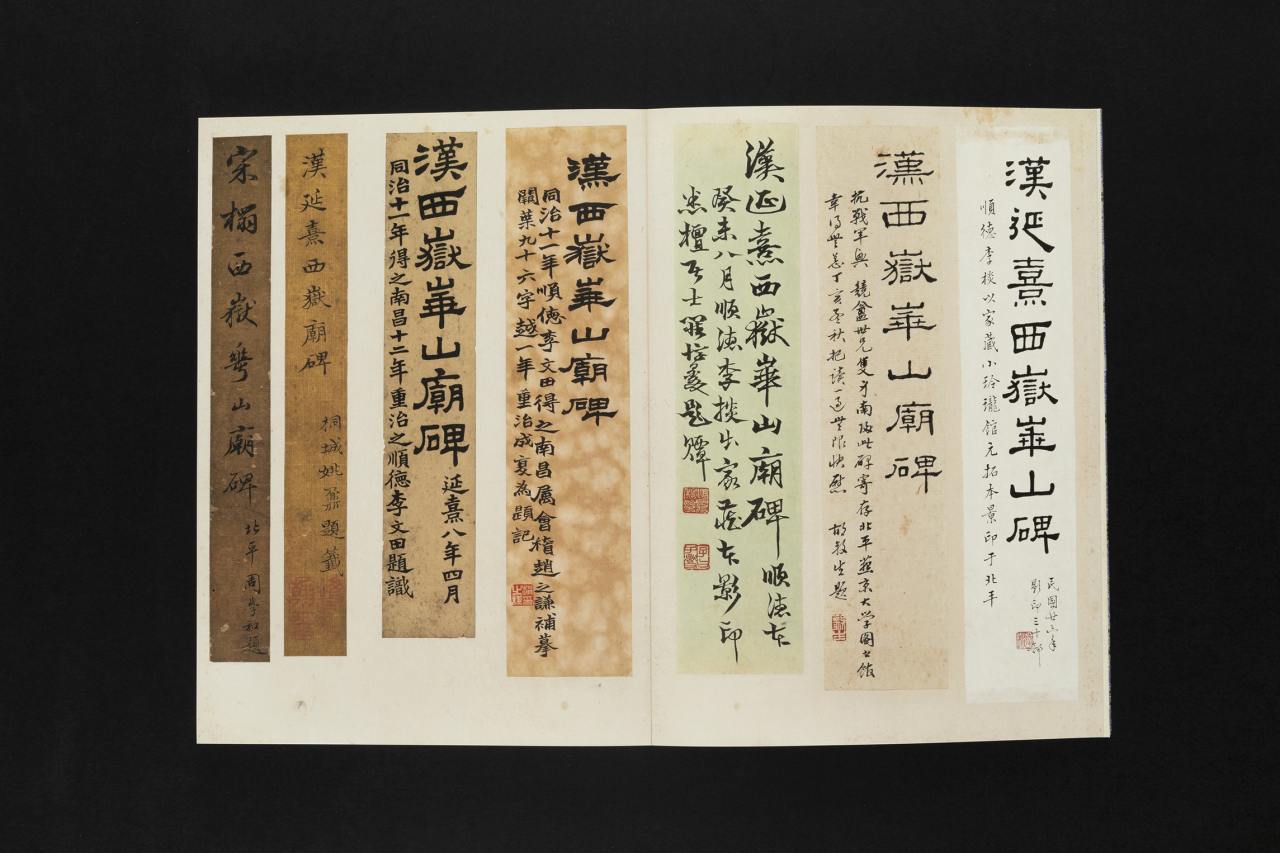 漢延熹西嶽華山碑
民國廿三年
影印三十部
順德李棪以家藏小玲瓏館元拓本景印于北平
漢西嶽華山廟碑
抗戰軍興 競盦世兄隻身南歸此碑寄存北平燕京大學圖書館
幸得無恙丁亥孟秋把讀一過無限快慰
漢延熹西嶽華山廟碑 順德
癸未八月順德李棪出家藏本影印
漢西嶽華山廟碑
同治十一年順德李文田得之南昌屬會稽趙之謙補摹
闕葉九十六字越一年重治成裝為題記
漢西嶽華山廟碑 延熹八年四月
同治十一年得之南昌十二年重治之順德李文田題識
漢延熹西嶽廟碑
桐城姚鼐題籤
宋榻西嶽華山廟碑
北平